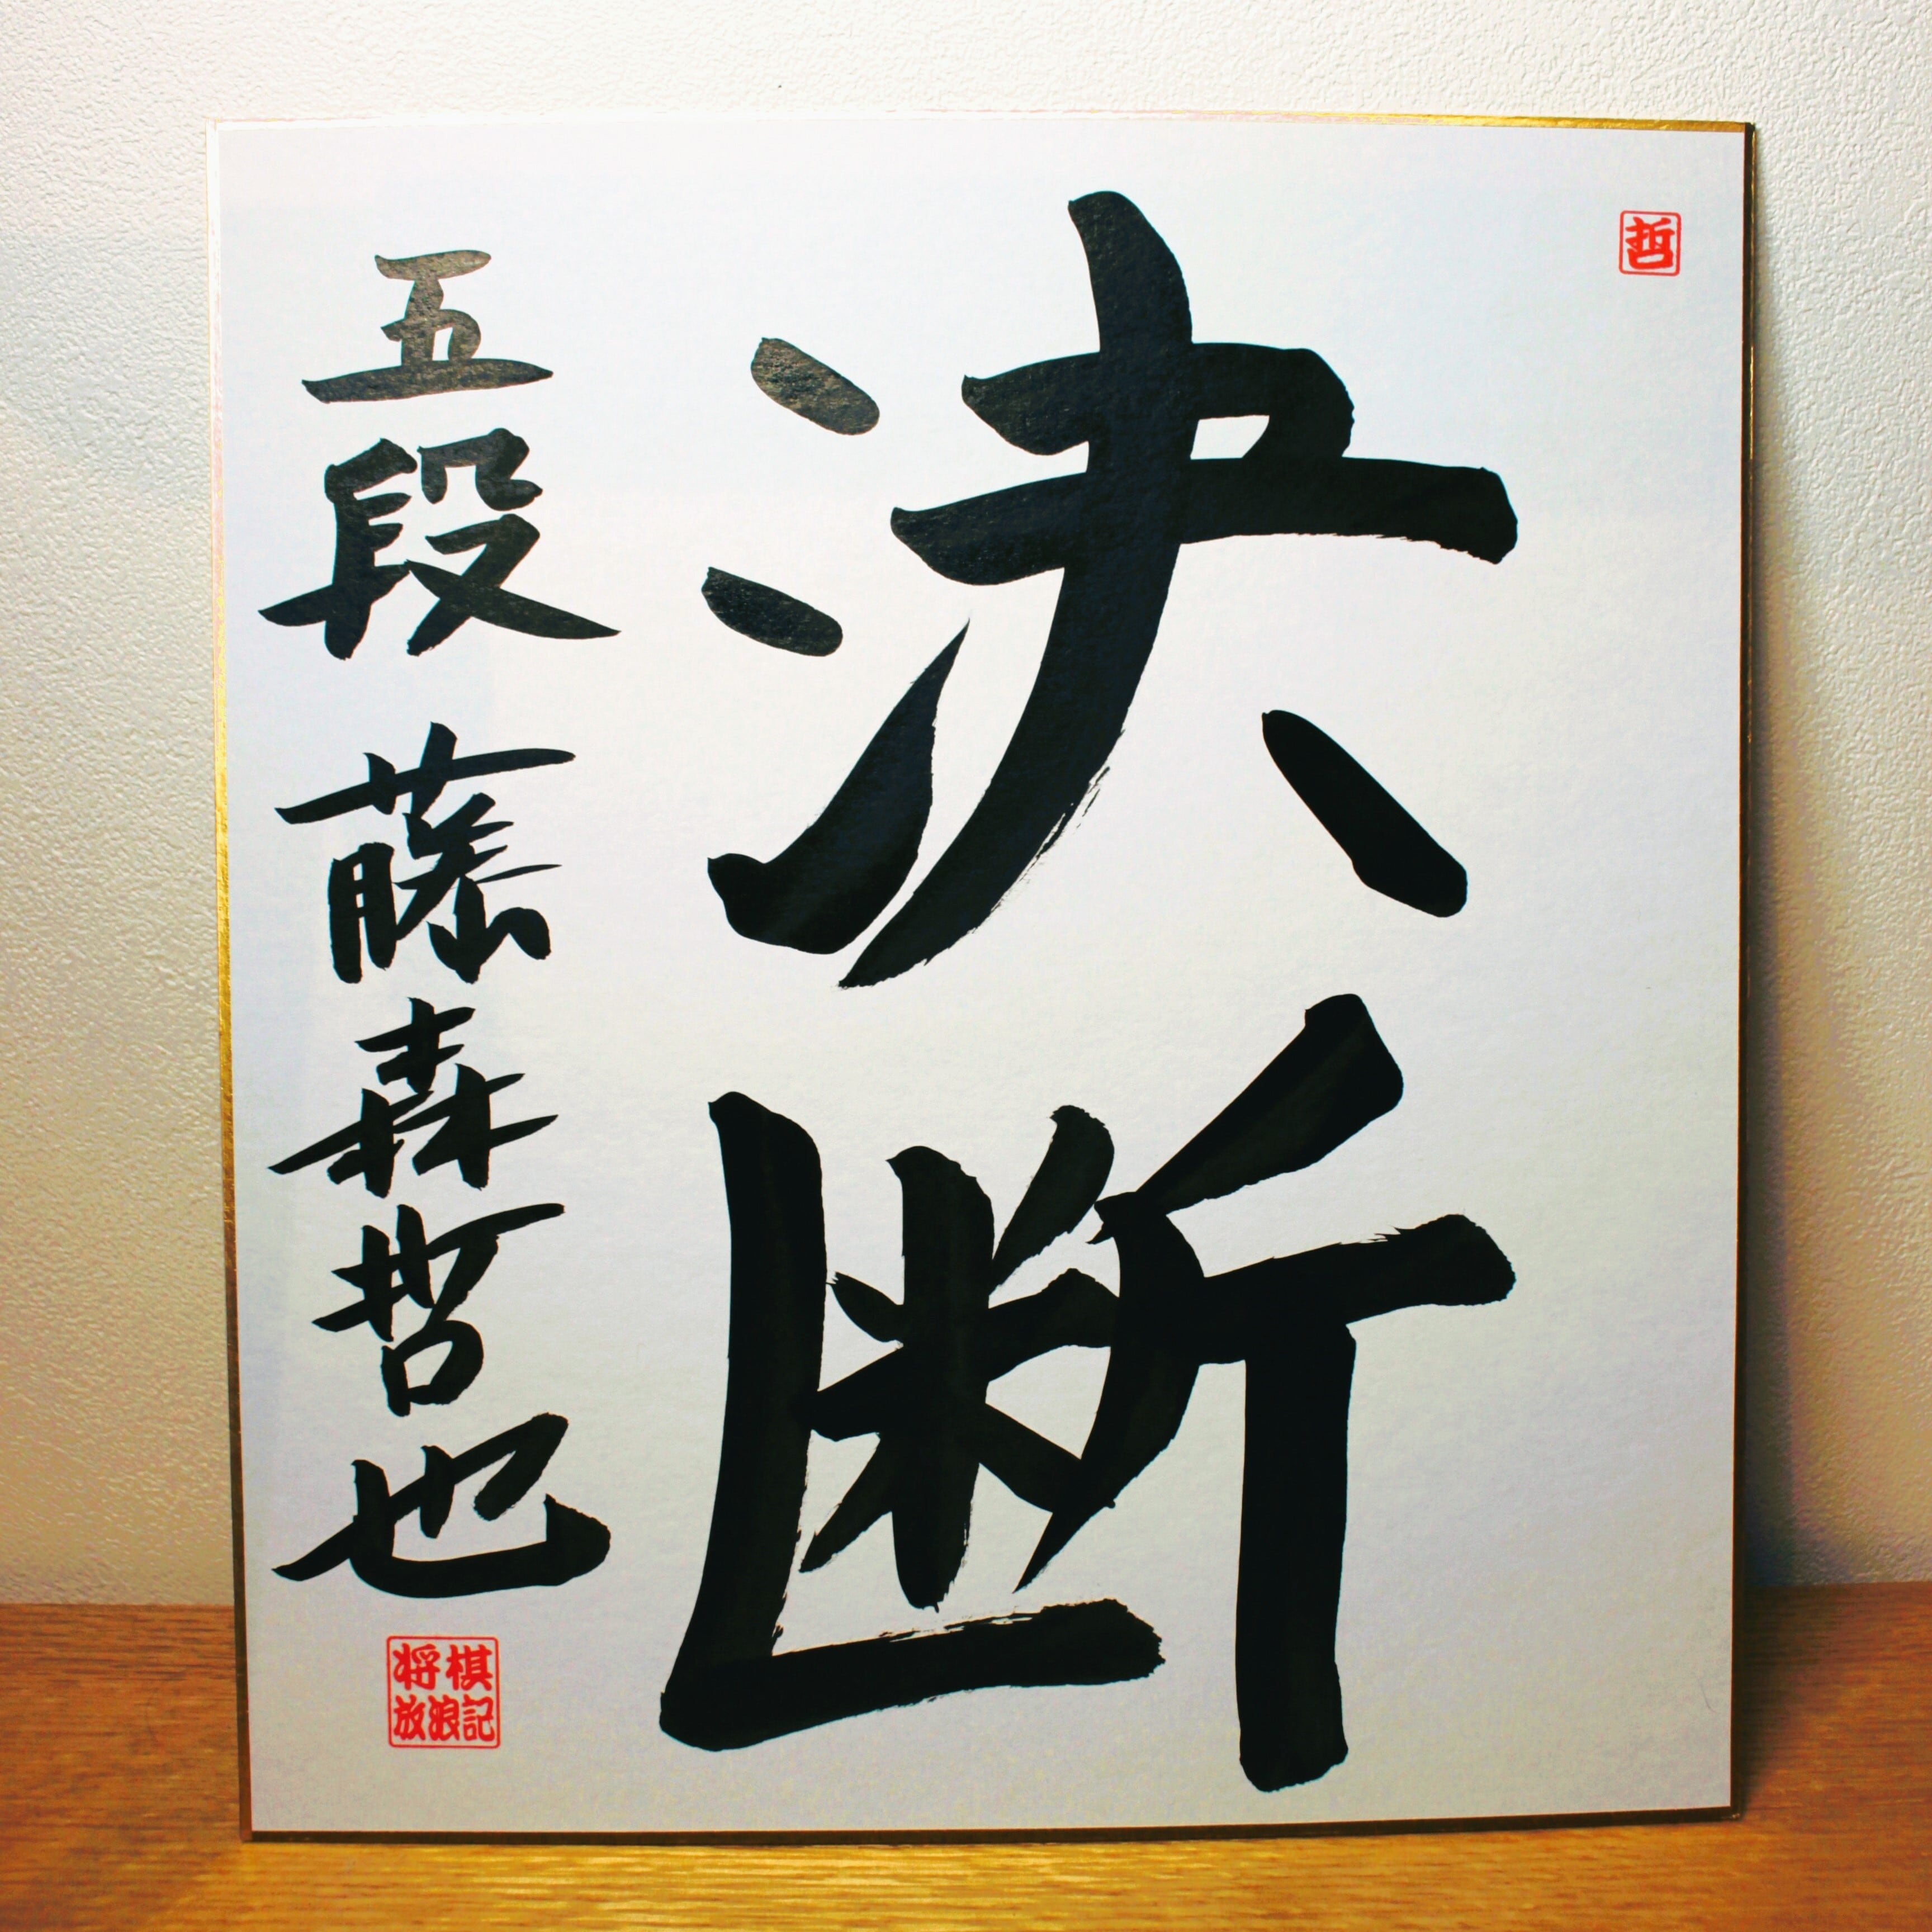 哲
決断
五段 藤森哲也
将棋
放浪記